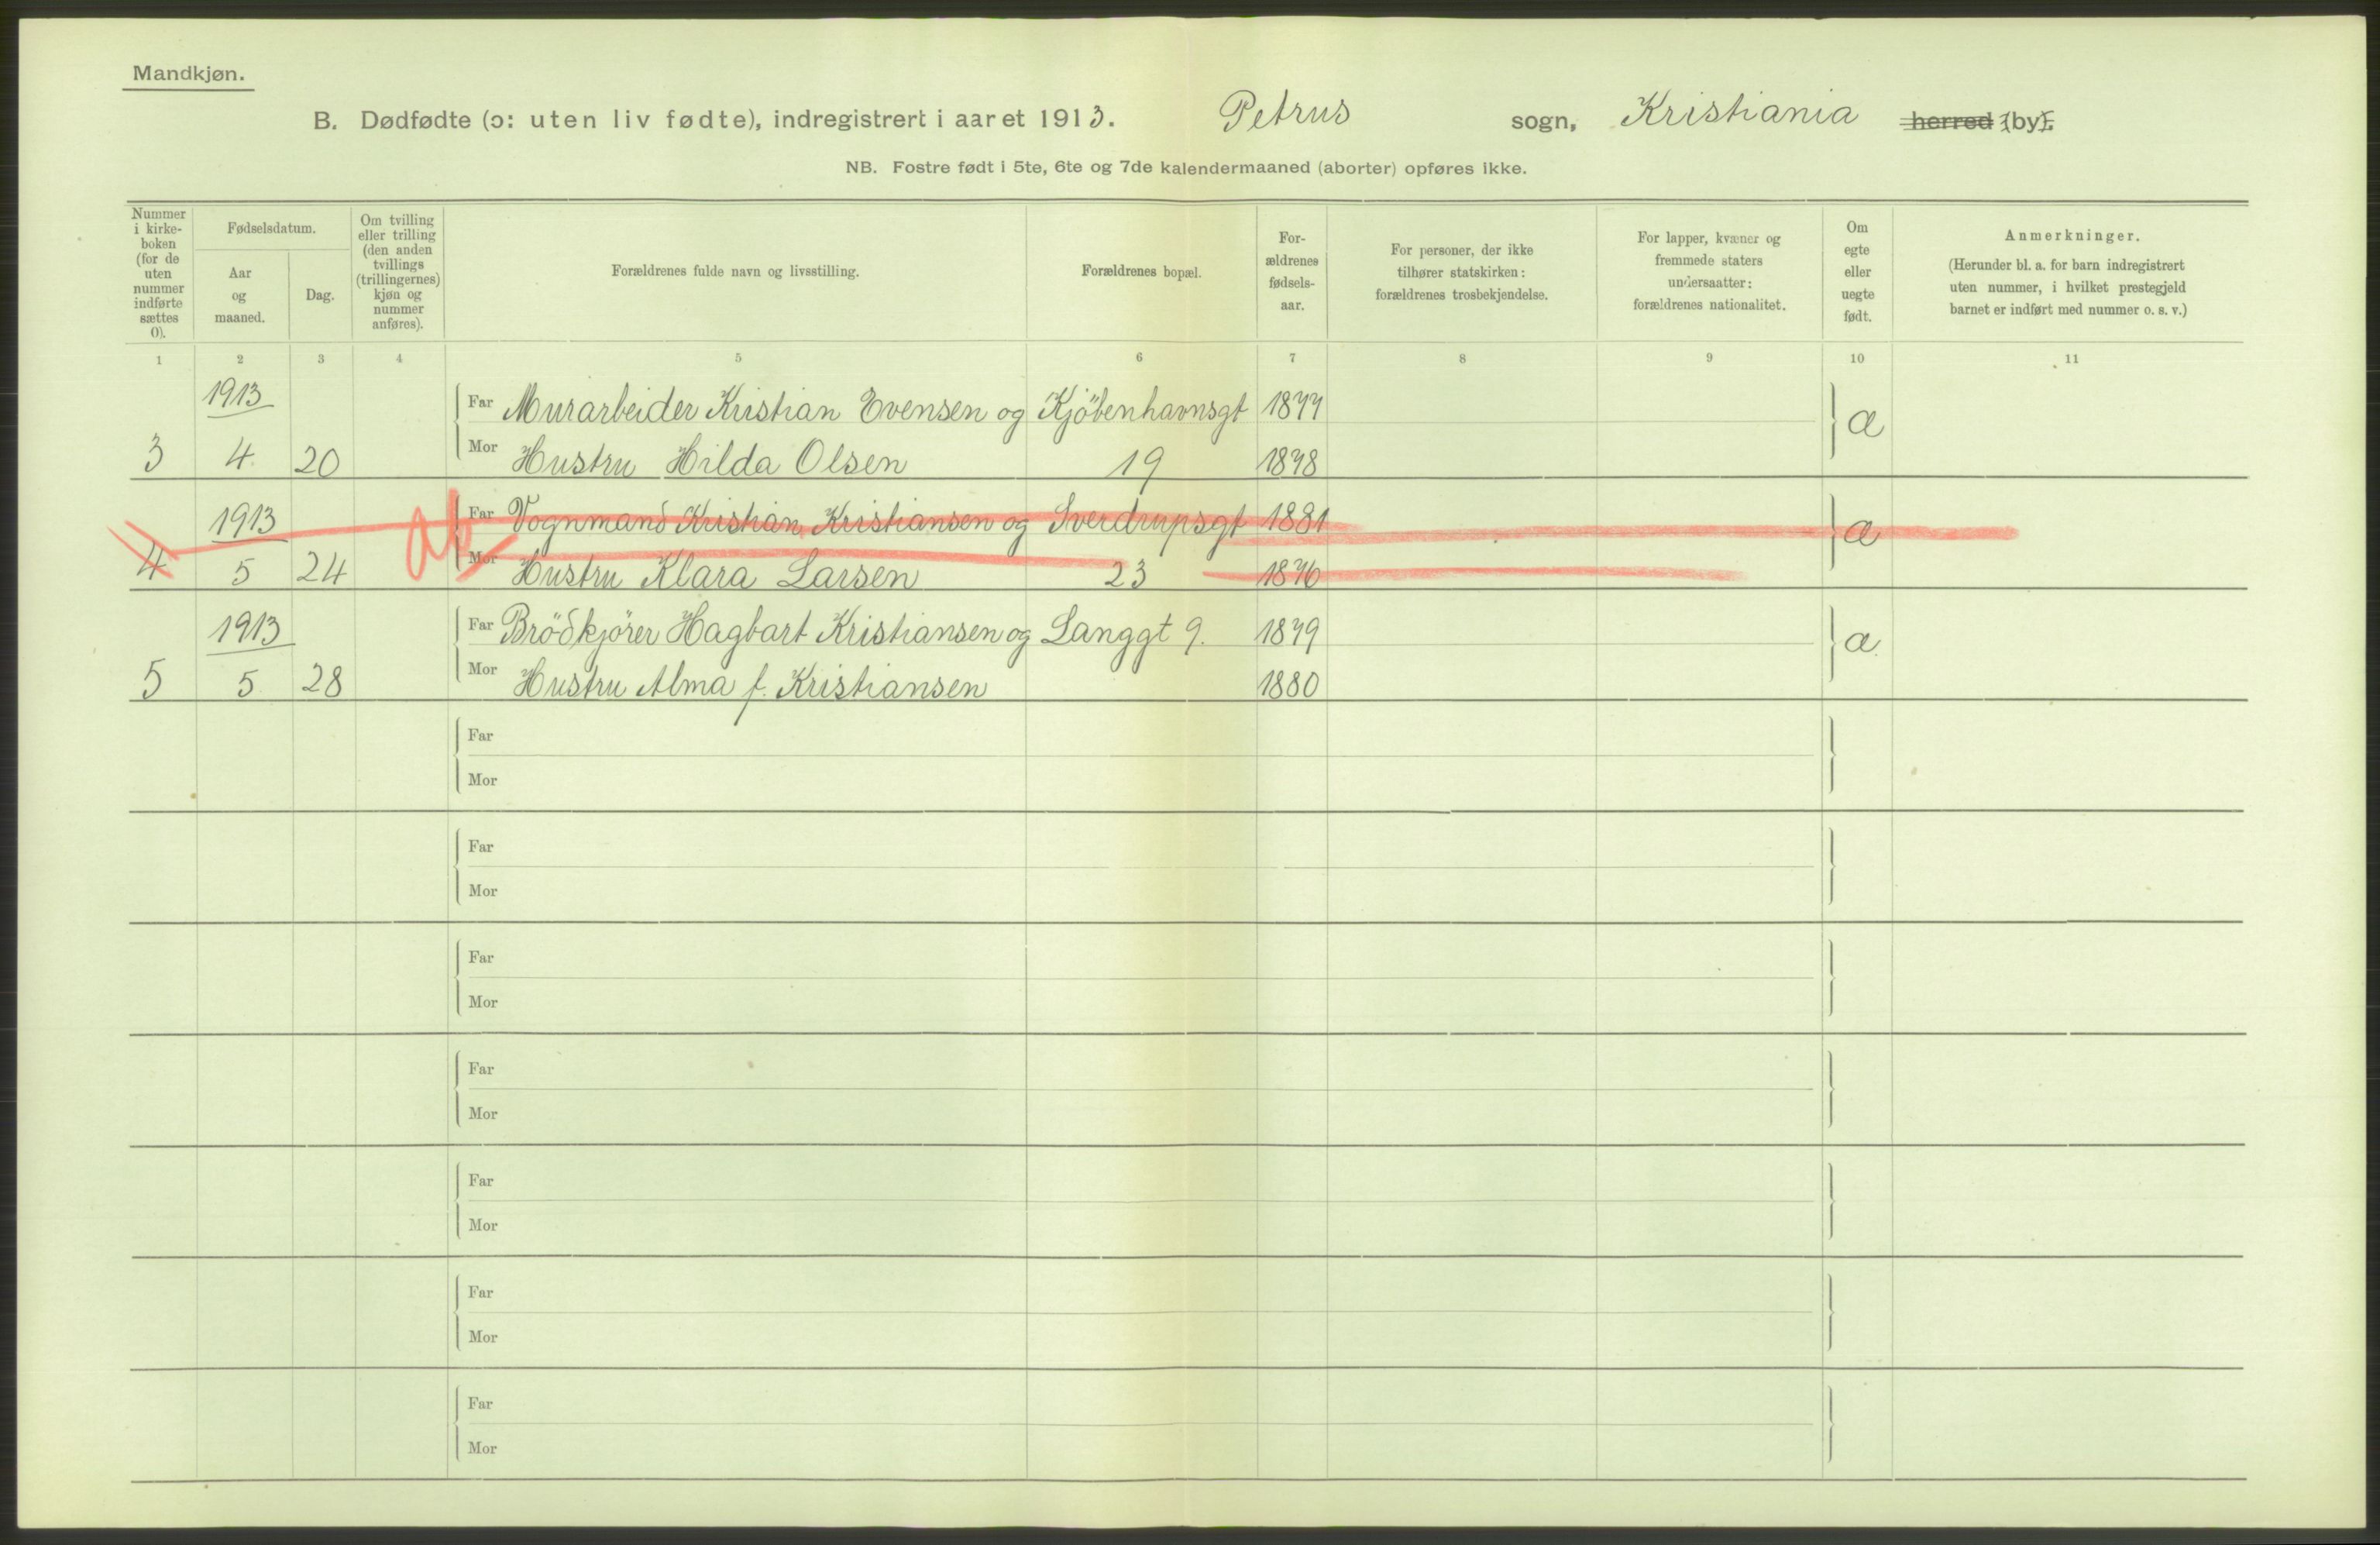 Mandkjøn.
B. Dødfødte (ɔ: uten liv fødte), indregistrert i aaret 1913. Petrus sogn, Kristiania herred (by).
NB. Fostre født i 5te, 6te og 7de kalendermaaned (aborter) opføres ikke.
Nummer i kirke-boken (for de uten nummer indførte sættes 0).
Fødselsdatum.
Aar og maaned.
Dag.
Om tvilling eller trilling (den anden tvillings (trillingernes) kjøn og nummer anføres).
Forældrenes fulde navn og livsstilling.
Forældrenes bopæl.
For-ældrenes fødsels-aar.
For personer, der ikke tilhører statskirken: forældrenes trosbekjendelse.
For lapper, kvæner og fremmede staters undersaatter: forældrenes nationalitet.
Om egte eller uegte født.
Anmerkninger.
(Herunder bl. a. for barn indregistrert uten nummer, i hvilket prestegjeld barnet er indført med nummer o. s. v.)
1 2 3 4 5 6 7 8 9 10 11
1913 Far Murarbeider Kristian Evensen og Kjöbenhavnsgt 1877 æ
3 4. 20 Mor Hustru Hilda Olsen 19 1878
1913 ab Far Vognmand Kristian Kristiansen og Sverdrupsgt 1881 æ
4 5 24 Mor Hustru Klara Larsen 23 1876
1913 Far Brödkjörer Hagbart Kristiansen og Langgt 9. 1879 æ.
5 5 28 Mor Hustru Alma f. Kristiansen 1880
Far
Mor
Far
Mor
Far
Mor
Far
Mor
Far
Mor
Far
Mor
Far
Mor